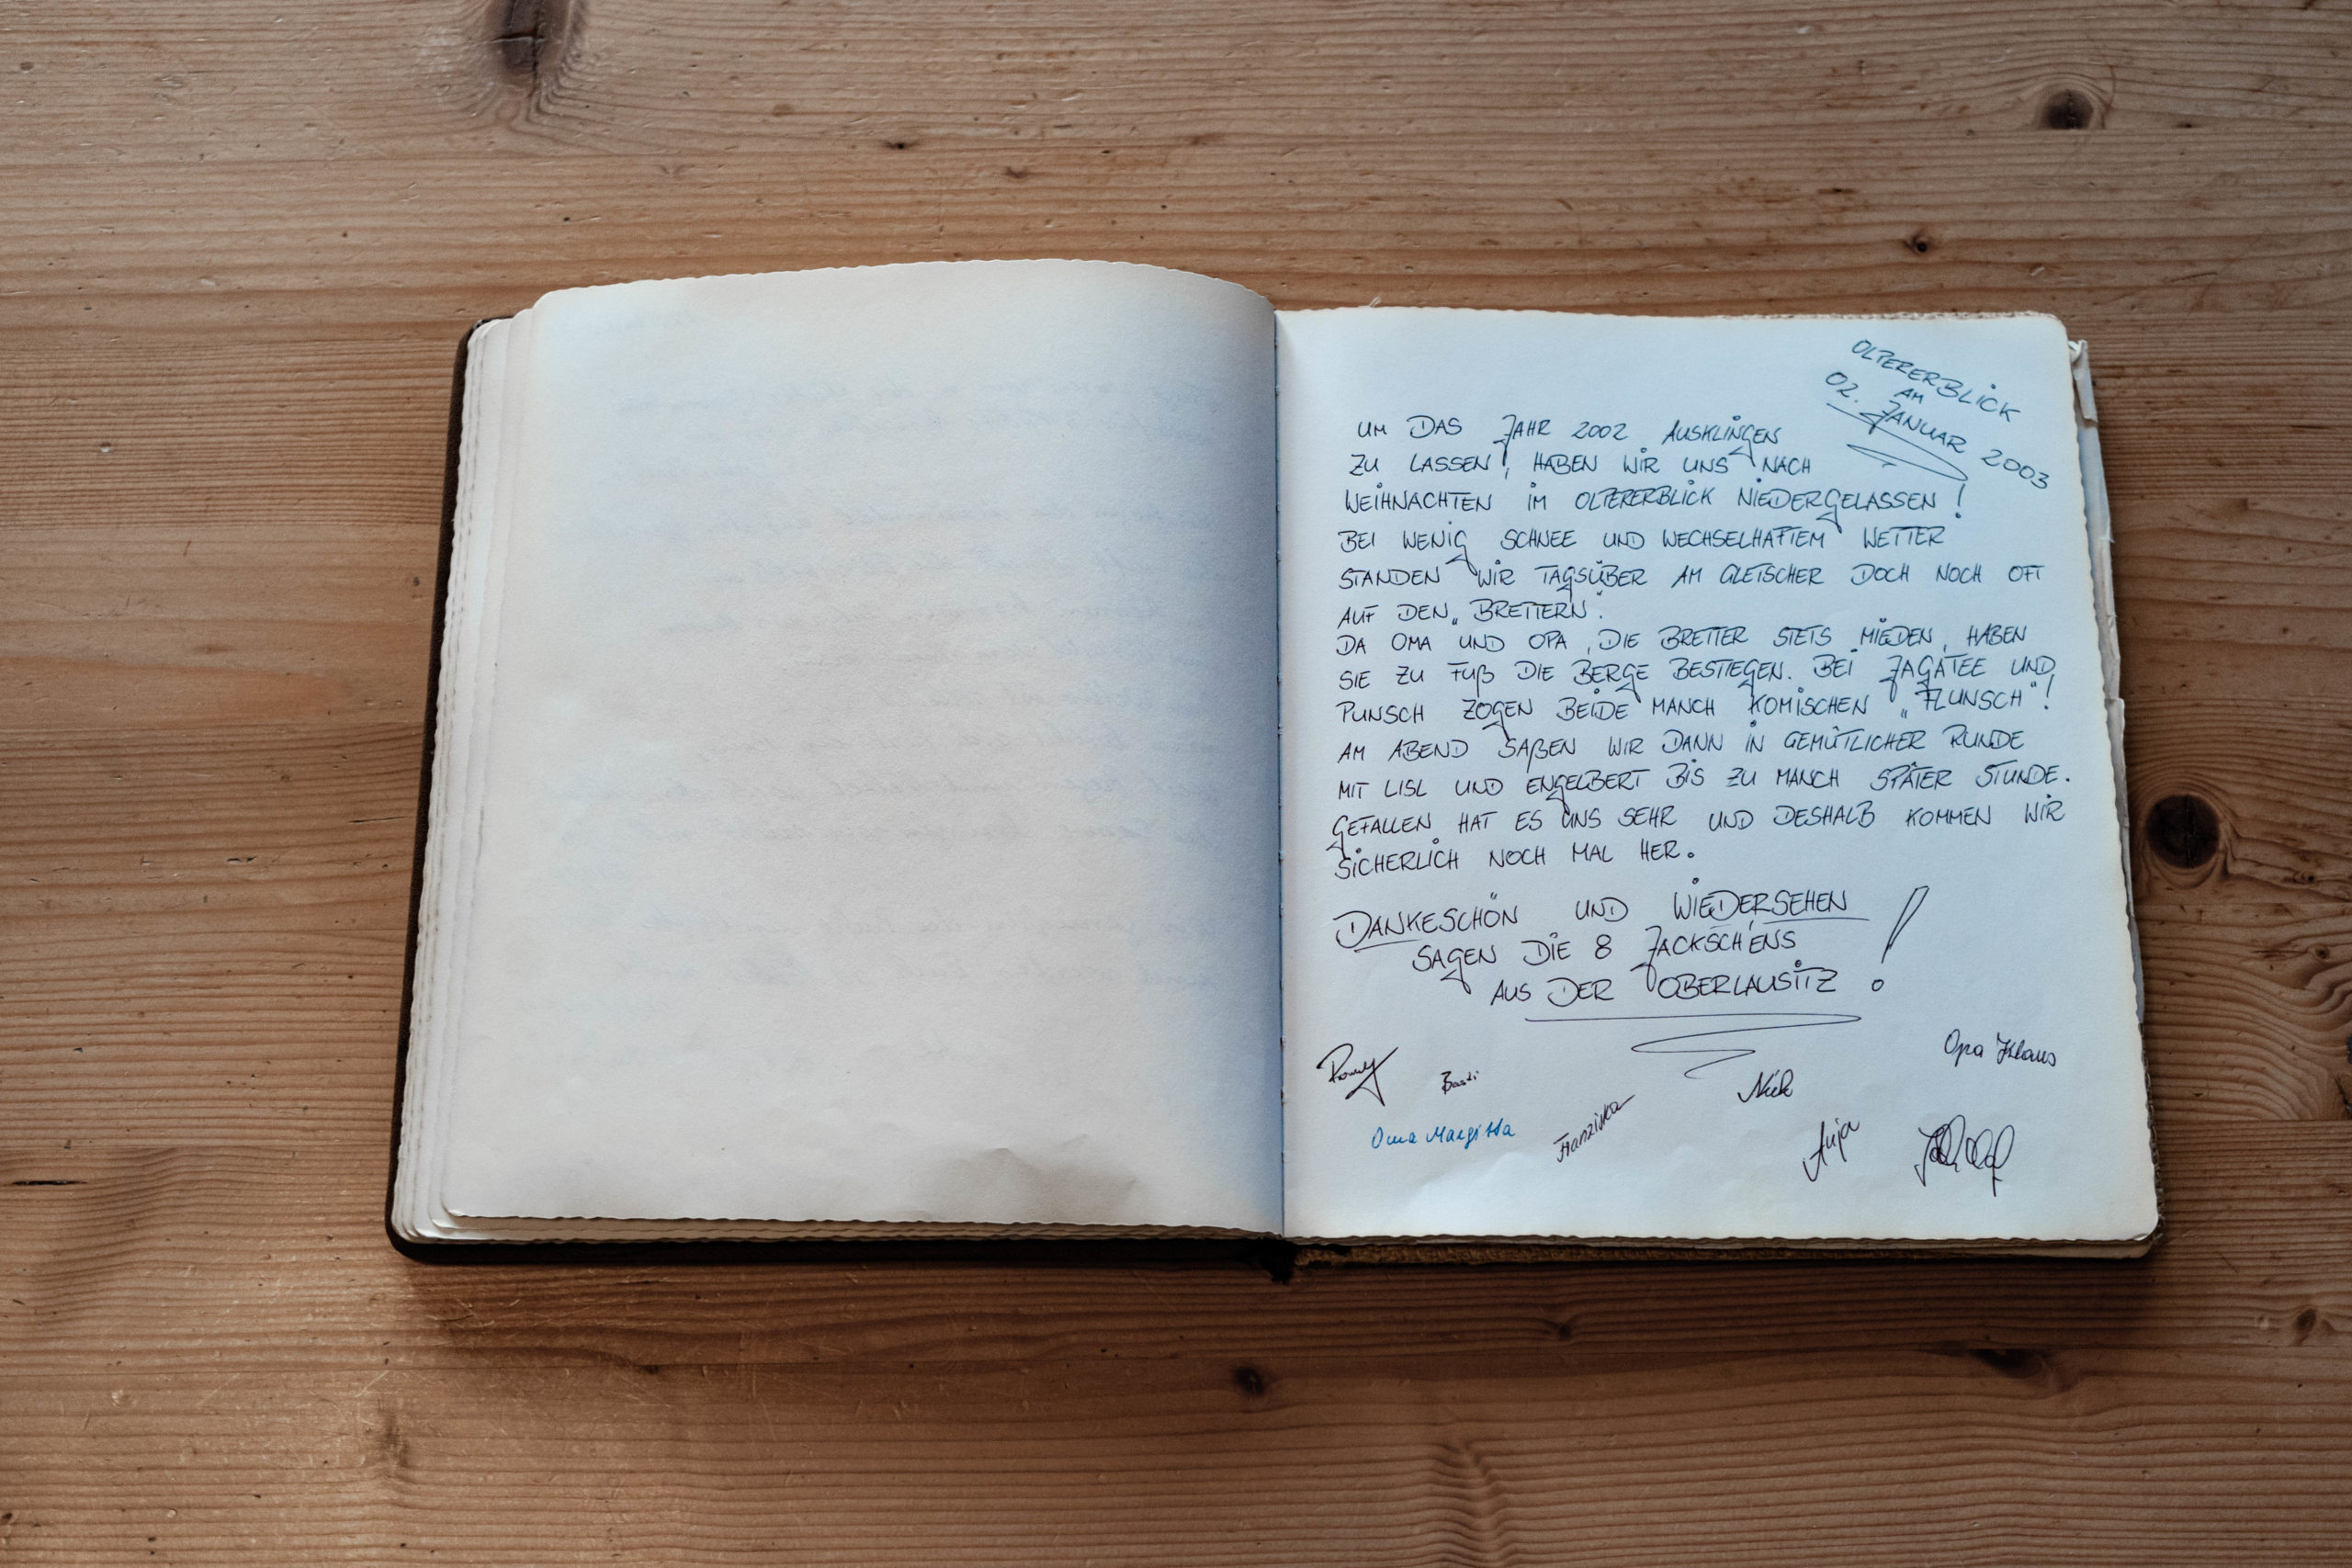 OLPERERBLICK
AM
02. JANUAR 2003
UM DAS JAHR 2002 AUSKLINGEN
ZU LASSEN, HABEN WIR UNS NACH
WEIHNACHTEN IM OLPERERBLICK NIEDERGELASSEN!
BEI WENIG SCHNEE UND WECHSELHAFTEM WETTER
STANDEN WIR TAGSÜBER AM GLETSCHER DOCH NOCH OFT
AUF DEN „BRETTERN“.
DA OMA UND OPA, DIE BRETTER STETS MIEDEN, HABEN
SIE ZU FUß DIE BERGE BESTIEGEN. BEI JAGATEE UND
PUNSCH ZOGEN BEIDE MANCH KOMISCHEN „FLUNSCH“!
AM ABEND SAßEN WIR DANN IN GEMÜTLICHER RUNDE
MIT LISL UND ENGELBERT BIS ZU MANCH SPÄTER STUNDE.
GEFALLEN HAT ES UNS SEHR UND DESHALB KOMMEN WIR
SICHERLICH NOCH MAL HER.
DANKESCHÖN UND WIEDERSEHEN
SAGEN DIE 8 JACKSCHENS
AUS DER OBERLAUSITZ!
Opa Klaus
Ronny Basti Nick
Oma Margitta Franziska Anja